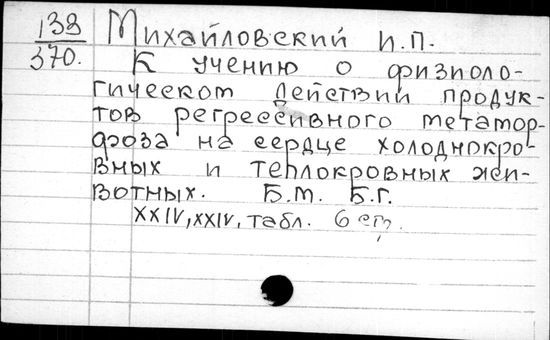 138 Михайловский И.П.
370. К учению о физиоло-
гическом действии продук-
тов регрессивного метамор-
фоза на сердце холоднокро-
вных и теплокровных жи-
вотных. Б.М. Б.Г.
XXIV, XXIV, табл. 6